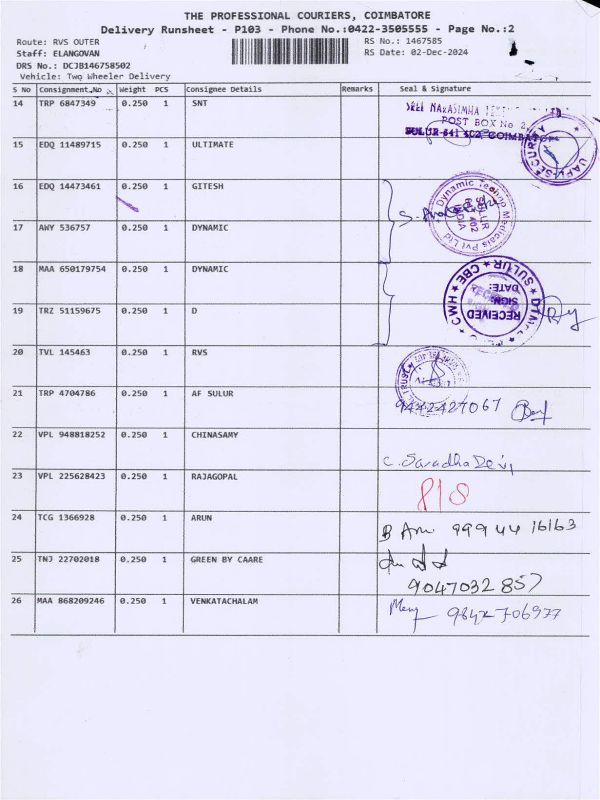 THE PROFESSIONAL COURIERS, COIMBATORE
Delivery Runsheet - P103 - Phone No.:0422-3505555 - Page No.:2
Route: RVS OUTER
RS No.: 1467585
Staff: ELANGOVAN
RS Date: 02-Dec-2024
DRS No.: DCJB146758502
Vehicle: Two Wheeler Delivery
S No Consignment No Weight PCS Consignee Details Remarks Seal & Signature
14 TRP 6847349 0.250 1 SNT
SREE NARASIMHA
POST BOX No 2
SULUR-641 402, COIMBATORE
UAPL SECURITY
15 EDQ 11489715 0.250 1 ULTIMATE
16 EDQ 14473461 0.250 1 GITESH
Dynamic Techno Medicals Pvt Ltd
SULUR
641 402
INDIA
17 AWY 536757 0.250 1 DYNAMIC
18 MAA 650179754 0.250 1 DYNAMIC
SULUR CBE
RECEIVED
SIGN:
DATE:
19 TRZ 51159675 0.250 1 D
20 TVL 145463 0.250 1 RVS
21 TRP 4704786 0.250 1 AF SULUR
9442427067
22 VPL 948818252 0.250 1 CHINASAMY
C. Saradha Devi
23 VPL 225628423 0.250 1 RAJAGOPAL
P/S
24 TCG 1366928 0.250 1 ARUN
99944 16163
25 TNJ 22702018 0.250 1 GREEN BY CAARE
9047032857
26 MAA 868209246 0.250 1 VENKATACHALAM
9842706977